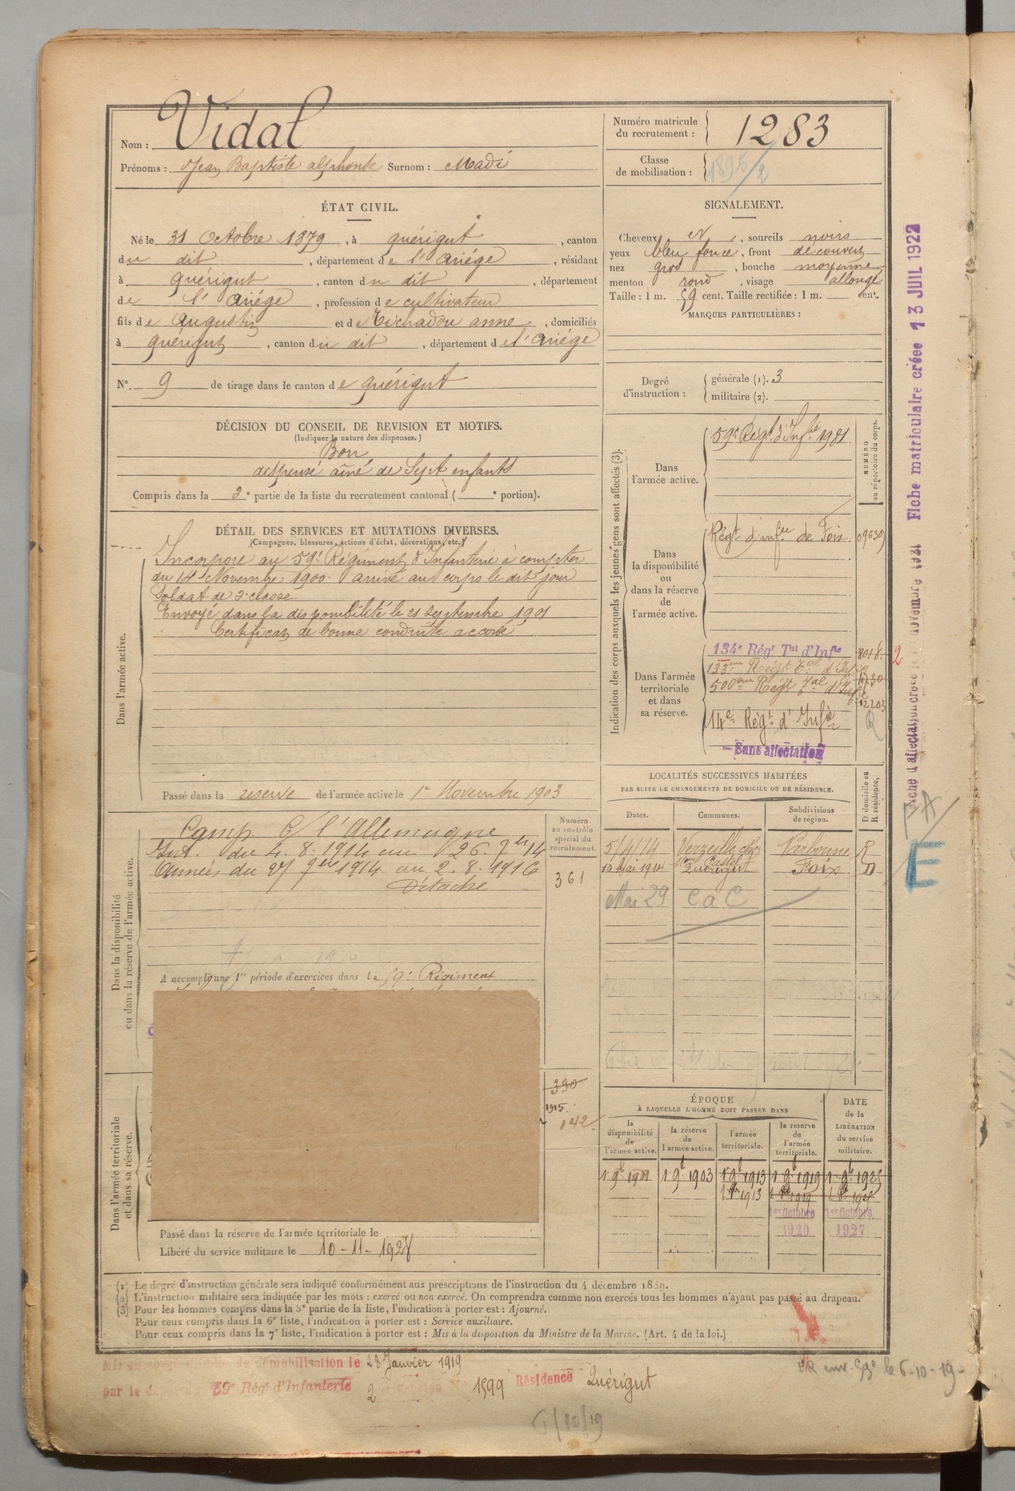 Nom : Vidal
Prénoms : Jean Baptiste alphonse Surnom : Madi
Numéro matricule du recrutement : 1283
Classe de mobilisation : 1896/2
ÉTAT CIVIL.
Né le 31 Octobre 1879, à quérigut, canton
du dit, département de l'ariége, résidant
à quérigut, canton du dit, département
de l'ariége, profession de cultivateur
fils de Augustin et de Michadou anne, domiciliés
à quérigut, canton du dit, département de l'ariége
N°. 9 de tirage dans le canton de quérigut
SIGNALEMENT.
Cheveux N, sourcils noirs
yeux bleu foncé, front découvert
nez gros, bouche moyenne
menton rond, visage allongé
Taille : 1 m. 59 cent. Taille rectifiée : 1 m. cent.
MARQUES PARTICULIÈRES :
Degré d'instruction : générale (1). 3
militaire (2).
DÉCISION DU CONSEIL DE REVISION ET MOTIFS.
(Indiquer la nature des dispenses.)
Bon
dispensé aîné de sept enfants
Compris dans la 2e partie de la liste du recrutement cantonal ( e portion).
DÉTAIL DES SERVICES ET MUTATIONS DIVERSES.
(Campagnes, blessures, actions d'éclat, décorations, etc.)
Dans l'armée active.
Incorporé au 59e Régiment d'Infanterie à compter
du 14 Novembre 1900. arrivé au corps le dit jour
Soldat de 2e classe
Envoyé dans la disponibilité le 21 Septembre 1901
Certificat de bonne conduite accordé
Passé dans la réserve de l'armée active le 1er Novembre 1903
Indication des corps auxquels les jeunes gens sont affectés (3).
NUMÉRO au répertoire du corps.
Dans l'armée active.
59e Régt d'Infie 1981
Dans la disponibilité ou dans la réserve de l'armée active.
Régt d'infie de Foix 09639
Dans l'armée territoriale et dans sa réserve.
134e Régt Tal d'Infie 8018
2
133ème Régt Tal d'Infie
500ème Régt Tal d'Infie
12203
14e Régt d'Infie
Sans affectation
Dans la disponibilité ou dans la réserve de l'armée active.
Camp. c/ l'Allemagne
Int. du 4.8.1914 au 26.9bre 14
Armées du 27 9bre 1914 au 2.8.1916
Détaché
A accompli une 1re période d'exercices dans le 59e Régiment
Numéro au contrôle spécial du recrutement.
361
LOCALITÉS SUCCESSIVES HABITÉES
PAR SUITE DE CHANGEMENTS DE DOMICILE OU DE RÉSIDENCE.
Dates. Communes. Subdivisions de région. D domicile ou R résidence.
5/4/14 Narbonne R
1914 Quérigut Foix D
Mai 29 CaC
Dans l'armée territoriale et dans sa réserve.
390
1915.
142
Passé dans la réserve de l'armée territoriale le
Libéré du service militaire le 10-11-1928
ÉPOQUE
À LAQUELLE L'HOMME DOIT PASSER DANS
DATE de la LIBÉRATION du service militaire.
la disponibilité de l'armée active. la réserve de l'armée active. l'armée territoriale. la réserve de l'armée territoriale.
1 9bre 1901 1 9bre 1903 1 9bre 1913 1 9bre 1919 1 9bre 1925
1913 1919
1er Octobre 1920 1er Octobre 1927
(1) Le degré d'instruction générale sera indiqué conformément aux prescriptions de l'instruction du 4 décembre 1889.
(2) L'instruction militaire sera indiquée par les mots : exercé ou non exercé. On comprendra comme non exercés tous les hommes n'ayant pas passé au drapeau.
(3) Pour les hommes compris dans la 5e partie de la liste, l'indication à porter est : Ajourné.
Pour ceux compris dans la 6e liste, l'indication à porter est : Service auxiliaire.
Pour ceux compris dans la 7e liste, l'indication à porter est : Mis à la disposition du Ministre de la Marine. (Art. 4 de la loi.)
démobilisation le 28 Janvier 1919
par le dépôt du 59e Régt d'Infanterie 2 1599 Résidence Quérigut
6/10/19
env. 59e le 6-10-19-
Fiche matriculaire créée 13 JUIL 1922
Fiche d'affectation créée novembre 1931
E